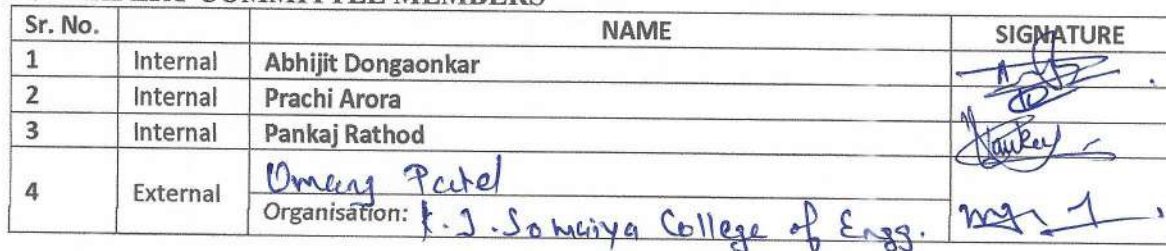 COMMITTEE MEMBERS
Sr. No. NAME SIGNATURE
1 Internal Abhijit Dongaonkar
2 Internal Prachi Arora
3 Internal Pankaj Rathod
4 External Umang Patel
Organisation: K.J. Somaiya College of Engg.